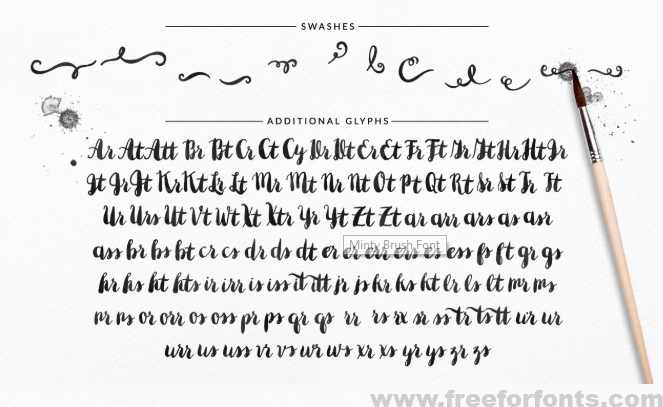 SWASHES
ADDITIONAL GLYPHS
Ar At Att Br Bt Cr Ct Cy Dr Dt Er Et Fr Ft Gr Gt Hr Ht Ir
It Jr Jt Kr Kt Lr Lt Mr Mt Nr Nt Ot Pt Qt Rt Sr St Tr Tt
Ur Urs Utt Vt Wt Xt Xtr Yr Yt Zt Zt ar arr ars as asr
ass br bs bt cr cs dr ds dt er er err ers es ess fs ft gr gs
Minty Brush Font
hr hs ht hts ir irr is iss itt itt jr js kr ks kt lr ls lt mr ms
nr ns or orr os oss pr ps qr qs rr rs rx sr ss tr ts tt ur ur
urr us uss vr vs wr ws xr xs yr ys zr zs
www.freeforfonts.com